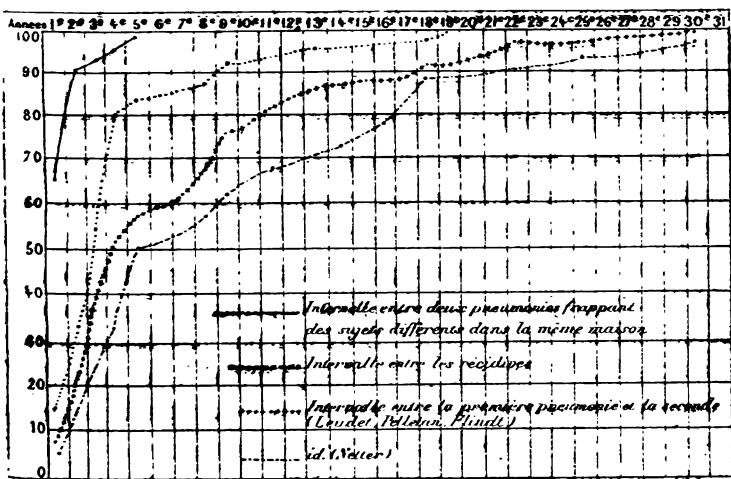 Années 1e 2e 3e 4e 5e 6e 7e 8e 9e 10e 11e 12e 13e 14e 15e 16e 17e 18e 19e 20e 21e 22e 23e 24e 25e 26e 27e 28e 29e 30e 31
100
90
80
70
60
50
40
40
20
10
0
Intervalle entre deux pneumonies frappant
des sujets différents dans la même maison
Intervalle entre les récidives
Intervalle entre la première pneumonie et la seconde
(Leudet, Pelletan, Flindt)
id. (Netter)